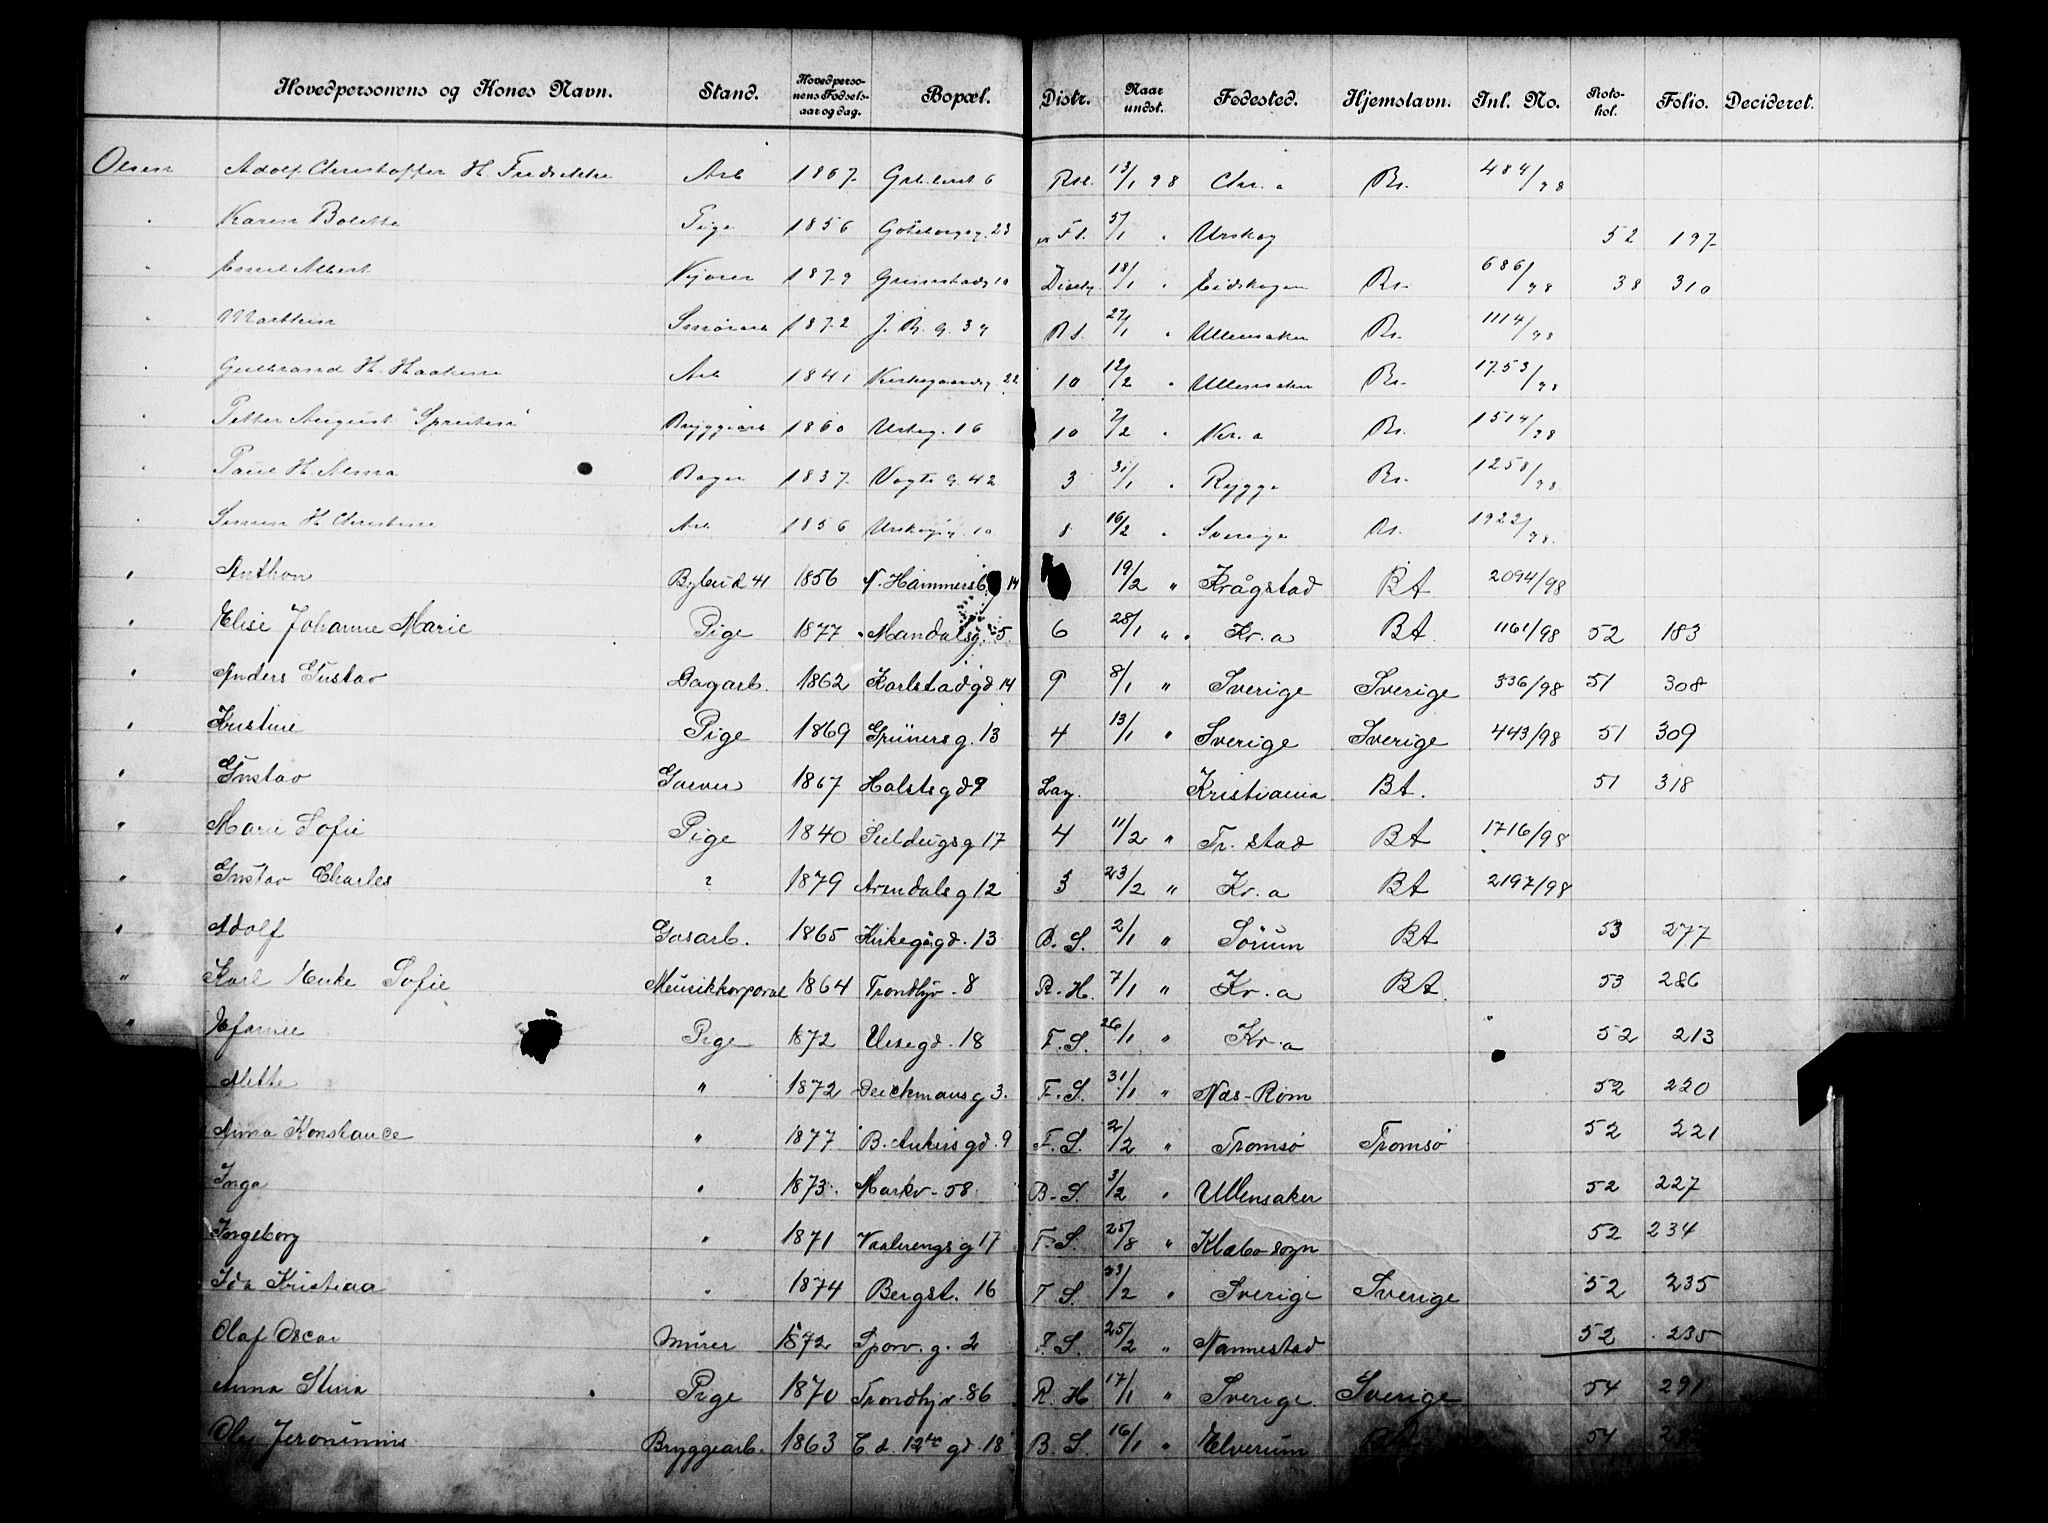 Hovedpersonens og Kones Navn. Stand. Hovedpersonens Fødselsaar og dag. Bopæl. Distr. Naar undst. Fødested. Hjemstavn. Inl. No. Protokol. Folio. Decideret.
Olsen Adolf Christoffer H. Fredrikke Arb 1867 6 13/1 98 Chr.a Br. 484/98
" Karen Bolette Pige 1856 Göteborgg. 23 F.S. 5/1 " Urskog 52 197
" Emil Albert Visergut 1879 Grimstadg 10 18/1 " Eidskogen Br. 686/98 38 310
" Marthin 1872 J. B. G. 39 R.S. 27/1 " Ullensaker Br. 1114/98
" Gulbrand H. Haakine Arb 1841 Kirkegaardsg 22 10 12/2 " Ullensaker Br. 1753/98
" Petter August "Spruten" Bryggearb 1860 Urteg. 16 10 7/2 " Kr.a Br. 1514/98
" Paul H. Alma Bager 1837 Vogts G. 42 3 31/1 " Rygge Br. 1258/98
" Simen H. Christine Arb 1856 Urskogsg. 10 8 16/2 " Sverige Br. 1922/98
" Anthon Bybud 41 1856 N. Hammersb. 14 19/2 " Krågstad BA 2094/98
" Elise Johanne Marie Pige 1877 Mandalsg. 5. 6 28/1 " Kr.a BA. 1161/98 52 183
" Anders Gustav Dagarb. 1862 Karlstadgd 14 9 8/1 " Sverige Sverige 336/98 51 308
" Kristine Pige 1869 Grünersg. 13 4 13/1 " Sverige Sverige 443/98 51 309
" Gustav Garver 1867 Holstsgd 9 Lag. Kristiania BA. 51 318
" Marie Sofie Pige 1840 Seildugsg 17 4 11/2 " Fr. stad BA 1716/98
" Gustav Charles ? 1879 Arendalsg 12 3 23/2 " Kr.a BA 2197/98
" Adolf Gasarb. 1865 Kirkegågd. 13 B.S. 2/1 " Sörum BA 53 277
" Karl Enke Sofie Musikkorporal 1864 Trondhjv. 8 R.H. 7/1 " Kr.a BA 53 286
" Pige 1872 18 F.S. 26/1 " Kr.a " 52 213
Mette " 1872 Deichmansg 3. F.S. 31/1 " Næs-Rom 52 220
Anna Konstance " 1877 B. Ankersgd. 9 F.S. 2/2 " Tromsø Tromsø 52 221
Inga " 1873 Markv. 58 B.S. 3/2 " Ullensaker 52 227
Ingeborg " 1871 Vaalerengsg 17 F.S. 25/8 " Klæbo sogn 52 234
Ida Kristiaa " 1874 Bergst. 16 F.S. 23/2 " Sverige Sverige 52 235
Olaf Oscar Murer 1872 Sporv.g. 2 F.S. 25/2 " Nannestad 52 235
Anna Stina Pige 1870 Trondhjv. 86 R.H 17/1 " Sverige Sverige 54 291
Ole Jeronimus Bryggearb. 1863 C d. 12te gd 18 B.S. 16/1 " Elverum 54